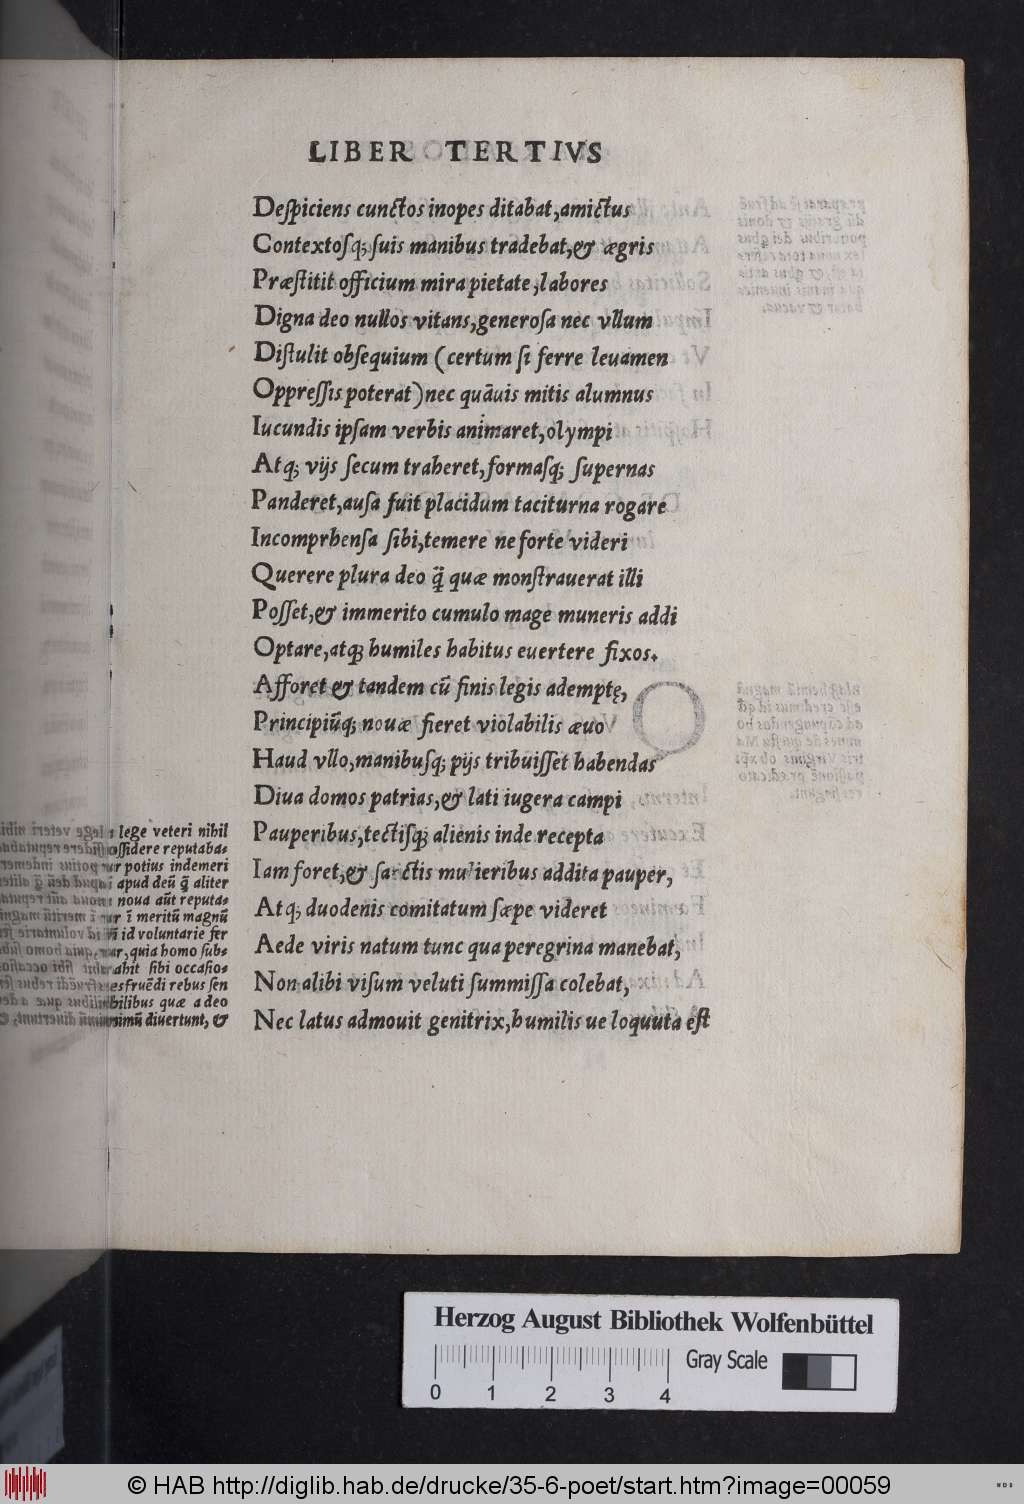 LIBER TERTIVS
Deſpiciens cunctos inopes ditabat, amictus
Contextoſq; ſuis manibus tradebat, & ægris
Præſtitit officium mira pietate, labores
Digna deo nullos vitans, generoſa nec vllum
Diſtulit obſequium (certum ſi ferre leuamen
Oppreſſis poterat) nec quãuis mitis alumnus
Iucundis ipſam verbis animaret, olympi
Atq; vijs ſecum traheret, formaſq; ſupernas
Panderet, auſa fuit placidum taciturna rogare
Incomprhenſa ſibi, temere ne forte videri
Querere plura deo q̃ quæ monſtrauerat illi
Poſſet, & immerito cumulo mage muneris addi
Optare, atq; humiles habitus euertere fixos.
Afforet & tandem cũ finis legis ademptę,
Principiũq; nouæ fieret violabilis æuo
Haud vllo, manibuſq; pijs tribuiſſet habendas
Diua domos patrias, & lati iugera campi
Pauperibus, tectiſq; alienis inde recepta
Iam foret, & ſanctis mulieribus addita pauper,
Atq; duodenis comitatum ſæpe videret
Aede viris natum tunc qua peregrina manebat,
Non alibi viſum veluti ſummiſſa colebat,
Nec latus admouit genitrix, humilis ue loquuta eſt
lege veteri nihil
oſſidere reputaba-
potius indemeri
apud deũ q̃ aliter
noua aũt reputa-
ĩ meritũ magnũ
id voluntarie fer
quia homo ſub-
ahit ſibi occaſio-
fruẽdi rebus ſen
bilibus quæ a deo
diuertunt, &
Herzog August Bibliothek Wolfenbüttel
Gray Scale
0 1 2 3 4
© HAB http://diglib.hab.de/drucke/35-6-poet/start.htm?image=00059